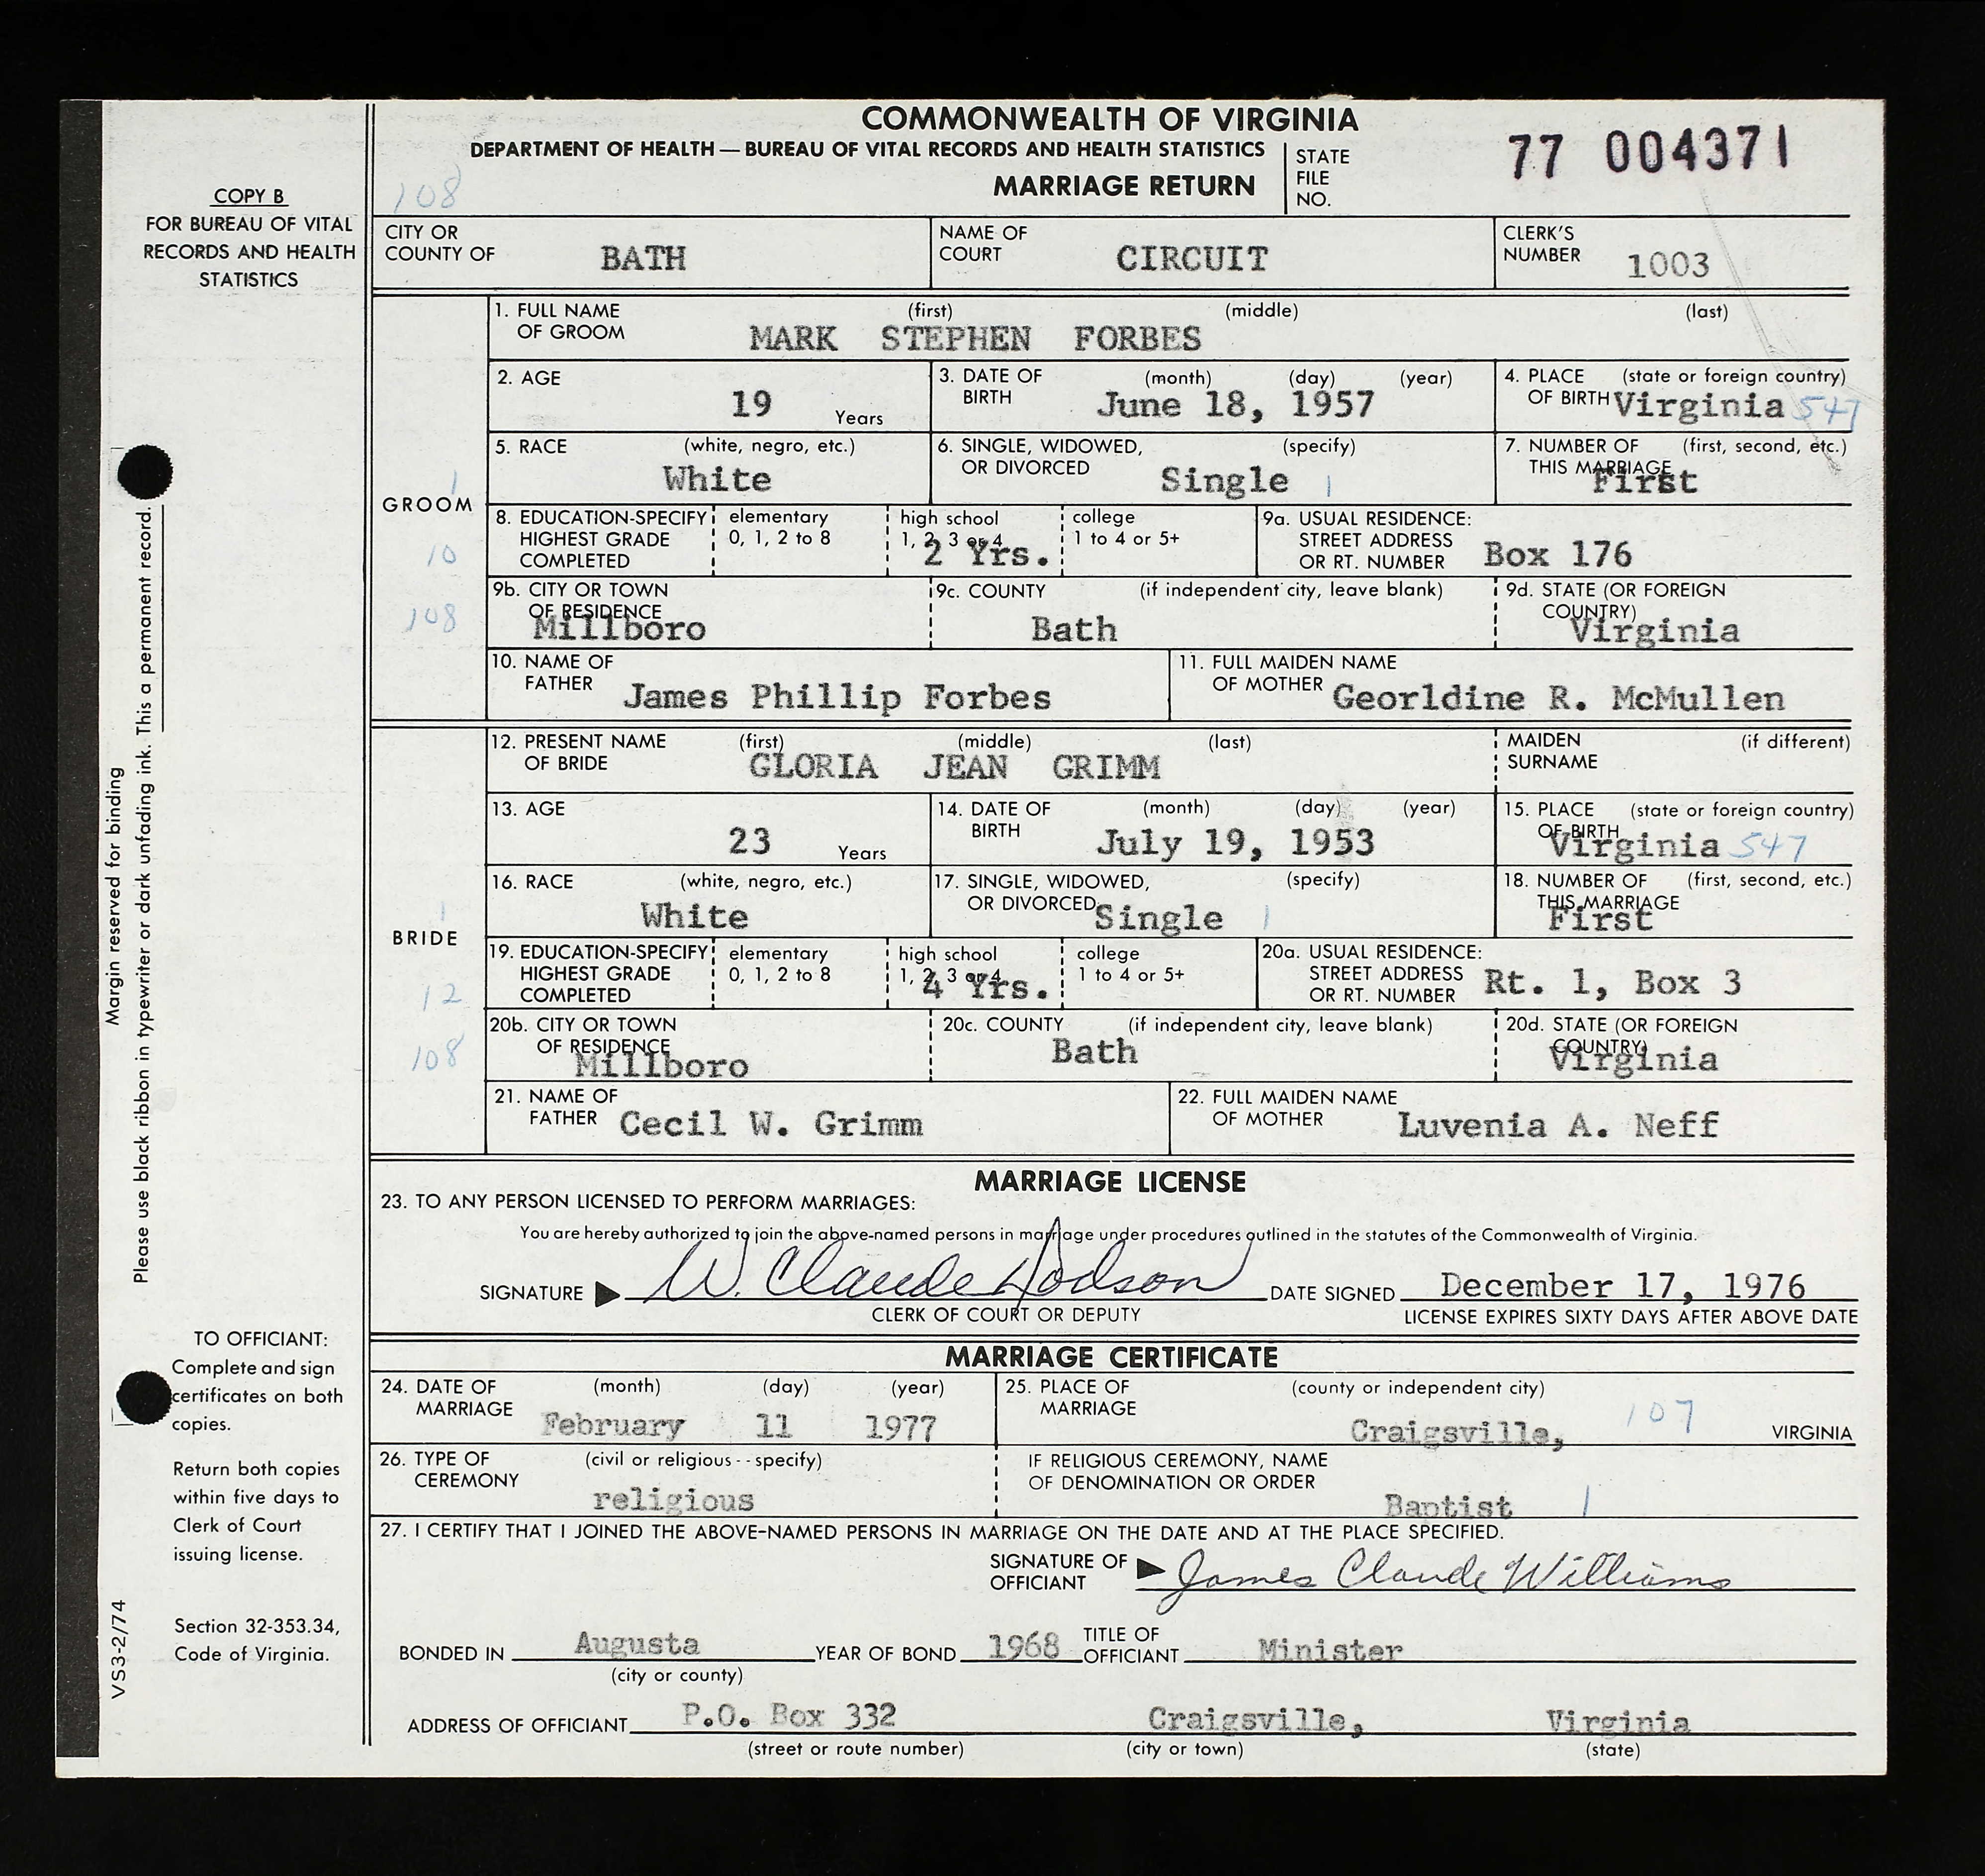 COMMONWEALTH OF VIRGINIA
DEPARTMENT OF HEALTH — BUREAU OF VITAL RECORDS AND HEALTH STATISTICS
MARRIAGE RETURN
STATE FILE NO. 77 004371
108
COPY B
FOR BUREAU OF VITAL
RECORDS AND HEALTH
STATISTICS
CITY OR COUNTY OF BATH
NAME OF COURT CIRCUIT
CLERK'S NUMBER 1003
GROOM
1
10
108
1. FULL NAME OF GROOM (first) (middle) (last)
MARK STEPHEN FORBES
2. AGE 19 Years
3. DATE OF BIRTH (month) (day) (year)
June 18, 1957
4. PLACE OF BIRTH (state or foreign country)
Virginia 547
5. RACE (white, negro, etc.)
White
6. SINGLE, WIDOWED, OR DIVORCED (specify)
Single 1
7. NUMBER OF THIS MARRIAGE (first, second, etc.)
First
8. EDUCATION-SPECIFY HIGHEST GRADE COMPLETED
elementary 0, 1, 2 to 8
high school 1, 2, 3 or 4
2 Yrs.
college 1 to 4 or 5+
9a. USUAL RESIDENCE: STREET ADDRESS OR RT. NUMBER
Box 176
9b. CITY OR TOWN OF RESIDENCE
Millboro
9c. COUNTY (if independent city, leave blank)
Bath
9d. STATE (OR FOREIGN COUNTRY)
Virginia
10. NAME OF FATHER James Phillip Forbes
11. FULL MAIDEN NAME OF MOTHER Georldine R. McMullen
BRIDE
1
12
108
12. PRESENT NAME OF BRIDE (first) (middle) (last)
GLORIA JEAN GRIMM
MAIDEN SURNAME (if different)
13. AGE 23 Years
14. DATE OF BIRTH (month) (day) (year)
July 19, 1953
15. PLACE OF BIRTH (state or foreign country)
Virginia 547
16. RACE (white, negro, etc.)
White
17. SINGLE, WIDOWED, OR DIVORCED (specify)
Single 1
18. NUMBER OF THIS MARRIAGE (first, second, etc.)
First
19. EDUCATION-SPECIFY HIGHEST GRADE COMPLETED
elementary 0, 1, 2 to 8
high school 1, 2, 3 or 4
4 Yrs.
college 1 to 4 or 5+
20a. USUAL RESIDENCE: STREET ADDRESS OR RT. NUMBER
Rt. 1, Box 3
20b. CITY OR TOWN OF RESIDENCE
Millboro
20c. COUNTY (if independent city, leave blank)
Bath
20d. STATE (OR FOREIGN COUNTRY)
Virginia
21. NAME OF FATHER Cecil W. Grimm
22. FULL MAIDEN NAME OF MOTHER Luvenia A. Neff
MARRIAGE LICENSE
23. TO ANY PERSON LICENSED TO PERFORM MARRIAGES:
You are hereby authorized to join the above-named persons in marriage under procedures outlined in the statutes of the Commonwealth of Virginia.
SIGNATURE W. Claude Hodson DATE SIGNED December 17, 1976
CLERK OF COURT OR DEPUTY
LICENSE EXPIRES SIXTY DAYS AFTER ABOVE DATE
MARRIAGE CERTIFICATE
24. DATE OF MARRIAGE (month) (day) (year)
February 11 1977
25. PLACE OF MARRIAGE (county or independent city)
Craigsville, 107 VIRGINIA
26. TYPE OF CEREMONY (civil or religious -- specify)
religious
IF RELIGIOUS CEREMONY, NAME OF DENOMINATION OR ORDER
Baptist 1
27. I CERTIFY THAT I JOINED THE ABOVE-NAMED PERSONS IN MARRIAGE ON THE DATE AND AT THE PLACE SPECIFIED.
SIGNATURE OF OFFICIANT James Claude Williams
BONDED IN Augusta YEAR OF BOND 1968 TITLE OF OFFICIANT Minister
(city or county)
ADDRESS OF OFFICIANT P.O. Box 332 Craigsville, Virginia
(street or route number) (city or town) (state)
Margin reserved for binding
Please use black ribbon in typewriter or dark unfading ink. This a permanent record.
TO OFFICIANT:
Complete and sign
certificates on both
copies.
Return both copies
within five days to
Clerk of Court
issuing license.
Section 32-353.34,
Code of Virginia.
VS3-2/74